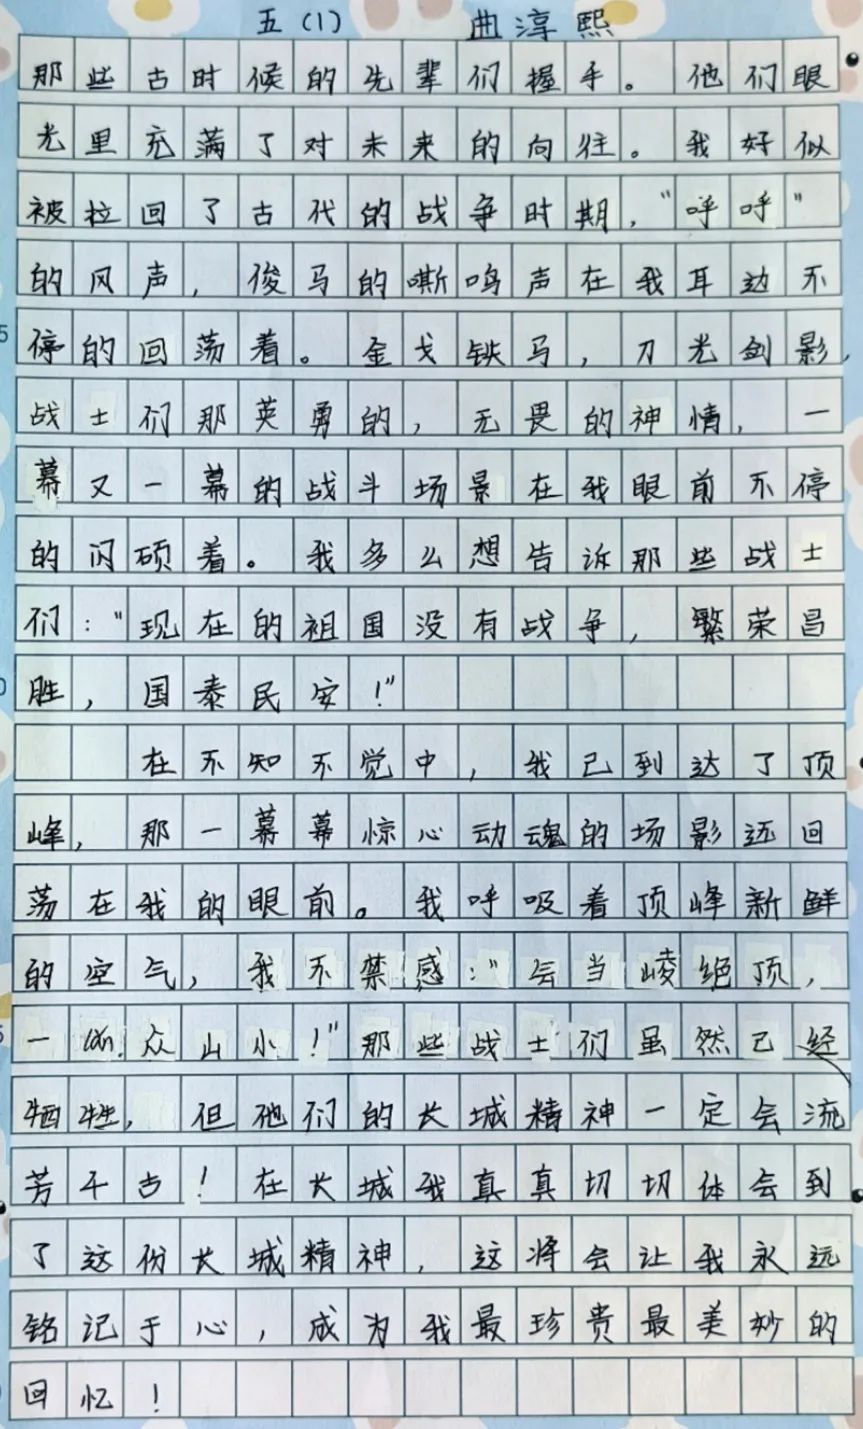 五(1) 曲淳熙
那些古时候的先辈们握手。他们眼
光里充满了对未来的向往。我好似
被拉回了古代的战争时期,“呼呼”
的风声,俊马的嘶鸣声在我耳边不
停的回荡着。金戈铁马,刀光剑影,
战士们那英勇的,无畏的神情,一
幕又一幕的战斗场景在我眼前不停
的闪硕着。我多么想告诉那些战士
们:“现在的祖国没有战争,繁荣昌
胜,国泰民安!”
在不知不觉中,我已到达了顶
峰,那一幕幕惊心动魂的场影还回
荡在我的眼前。我呼吸着顶峰新鲜
的空气,我不禁感:“会当崚绝顶,
一 众山小!”那些战士们虽然已经
牺牲,但他们的长城精神一定会流
芳千古!在长城我真真切切体会到
了这份长城精神,这将会让我永远
铭记于心,成为我最珍贵最美妙的
回忆!